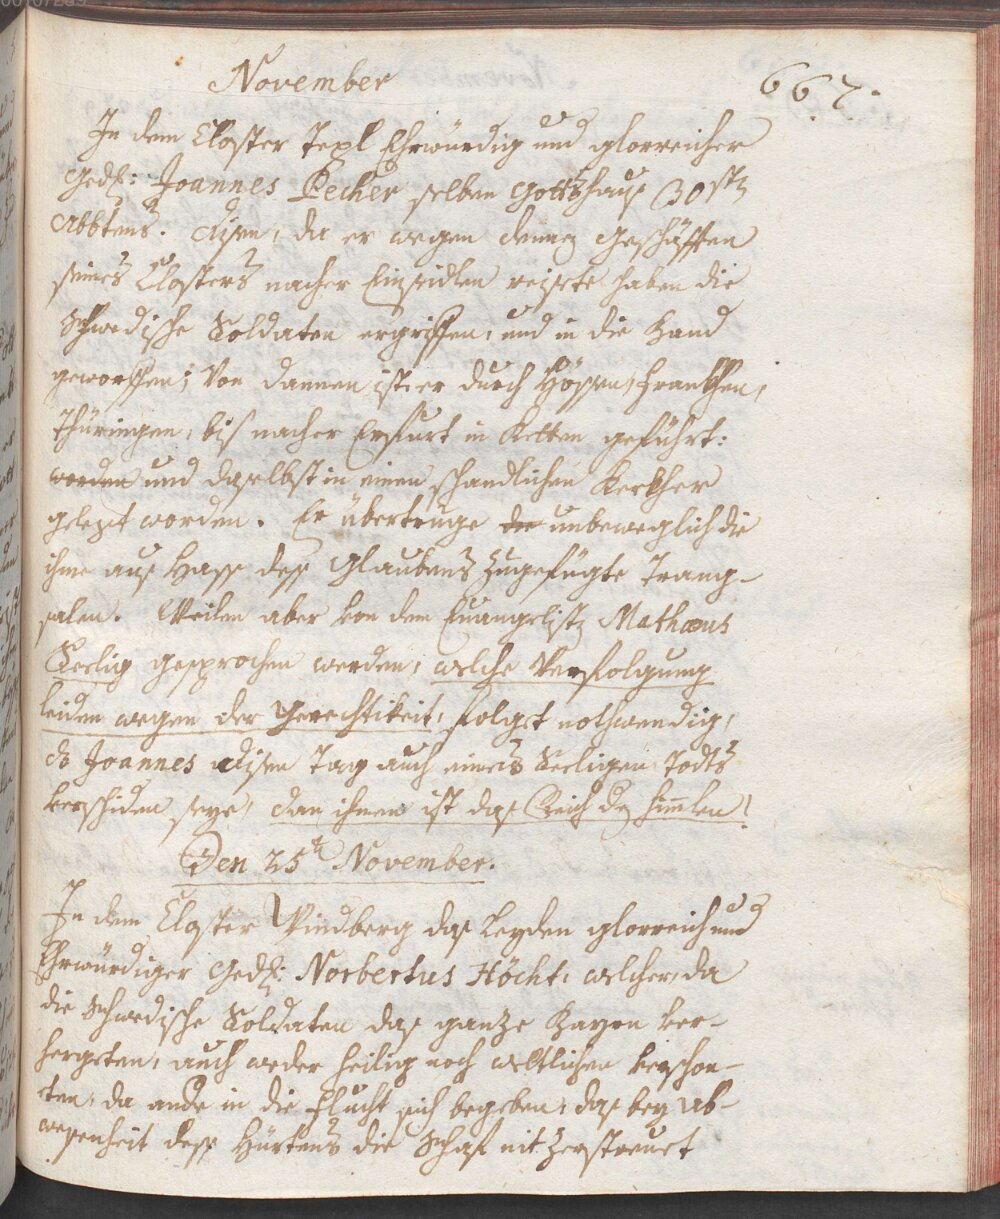 November 667.
In dem Closter Tepl Ehrwürdig und glorreicher
Ged: Joannes Pecher selben Gottshaus 30stn
Abbtens. disen, da er wegen denen Geschäfften
seines Closters nacher Einsidlen reisete haben die
Schwedische Soldaten ergriffen, und in die Band
geworffen; Von dannen ist er durch Hössen, Frankhen,
Thüringen, bis nacher Erfurt in Ketten geführt:
worden und daselbst in einen schandlichen Kerkher
gelegt worden. Er übertruge die unbeweglich die
ihme aus Hass dess Glaubens zugefügte Trang-
salen. Weilen aber von dem Euangelistn Mathæus
Seelig gesprochen werden, welche Verfolgung
leiden wegen der Gerechtikeit, folget nothwendig,
ds Joannes disen Tag auch eines Seeligen Todts
verschiden seye, dan ihnen ist das Reich der himmlen!
Den 25t November.
In dem Closter Windberg das Leyden glorreich und
Ehrwürdiger Ged: Norbertus Höcht, welcher, da
die Schwedische Soldaten das ganze Bayrn ver-
hergeten, auch weder heilig noch weltlichen verschon-
eten, da ande in die Flucht sich begeben, das bey Ab-
wesenheit dess Hürtens die Schaf nit zerstreuet